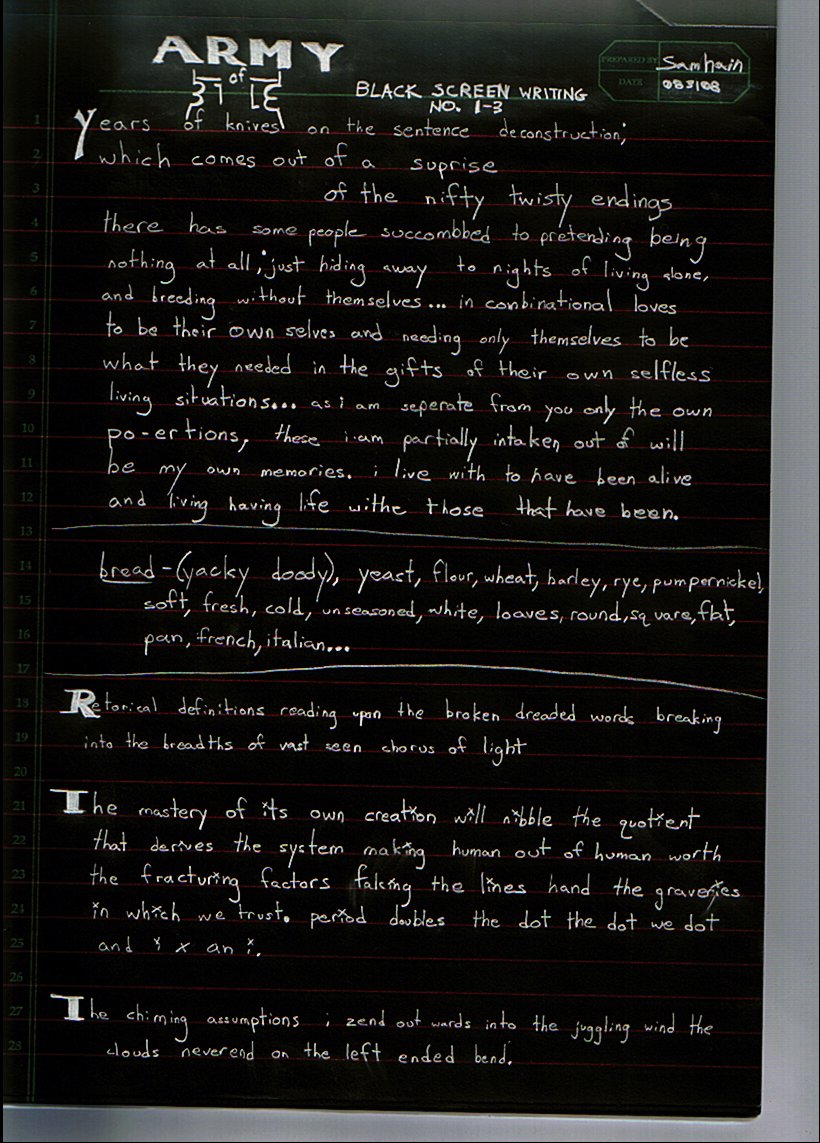 ARMY
of
PREPARED BY Samhain
DATE 083108
BLACK SCREEN WRITING
NO. 1-3
1 Years of knives on the sentence deconstruction;
2 which comes out of a suprise
3 of the nifty twisty endings
4 there has some people succombbed to pretending being
5 nothing at all, just hiding away to nights of living alone,
6 and breeding without themselves... in conbinational loves
7 to be their own selves and needing only themselves to be
8 what they needed in the gifts of their own selfless
9 living situations... as i am seperate from you only the own
10 po-ertions, these i am partially intaken out of will
11 be my own memories. i live with to have been alive
12 and living having life withe those that have been.
13
14 bread - (yacky doody), yeast, flour, wheat, barley, rye, pumpernickel,
15 soft, fresh, cold, unseasoned, white, loaves, round, square, flat,
16 pan, french, italian...
17
18 Retorical definitions reading upon the broken dreaded words breaking
19 into the breadths of vast seen chorus of light
20
21 The mastery of its own creation will nibble the quotient
22 that derives the system making human out of human worth
23 the fracturing factors faking the lines hand the graveries
24 in which we trust. period doubles the dot the dot we dot
25 and i x an i.
26
27 The chiming assumptions i zend out wards into the juggling wind the
28 clouds neverend on the left ended bend.